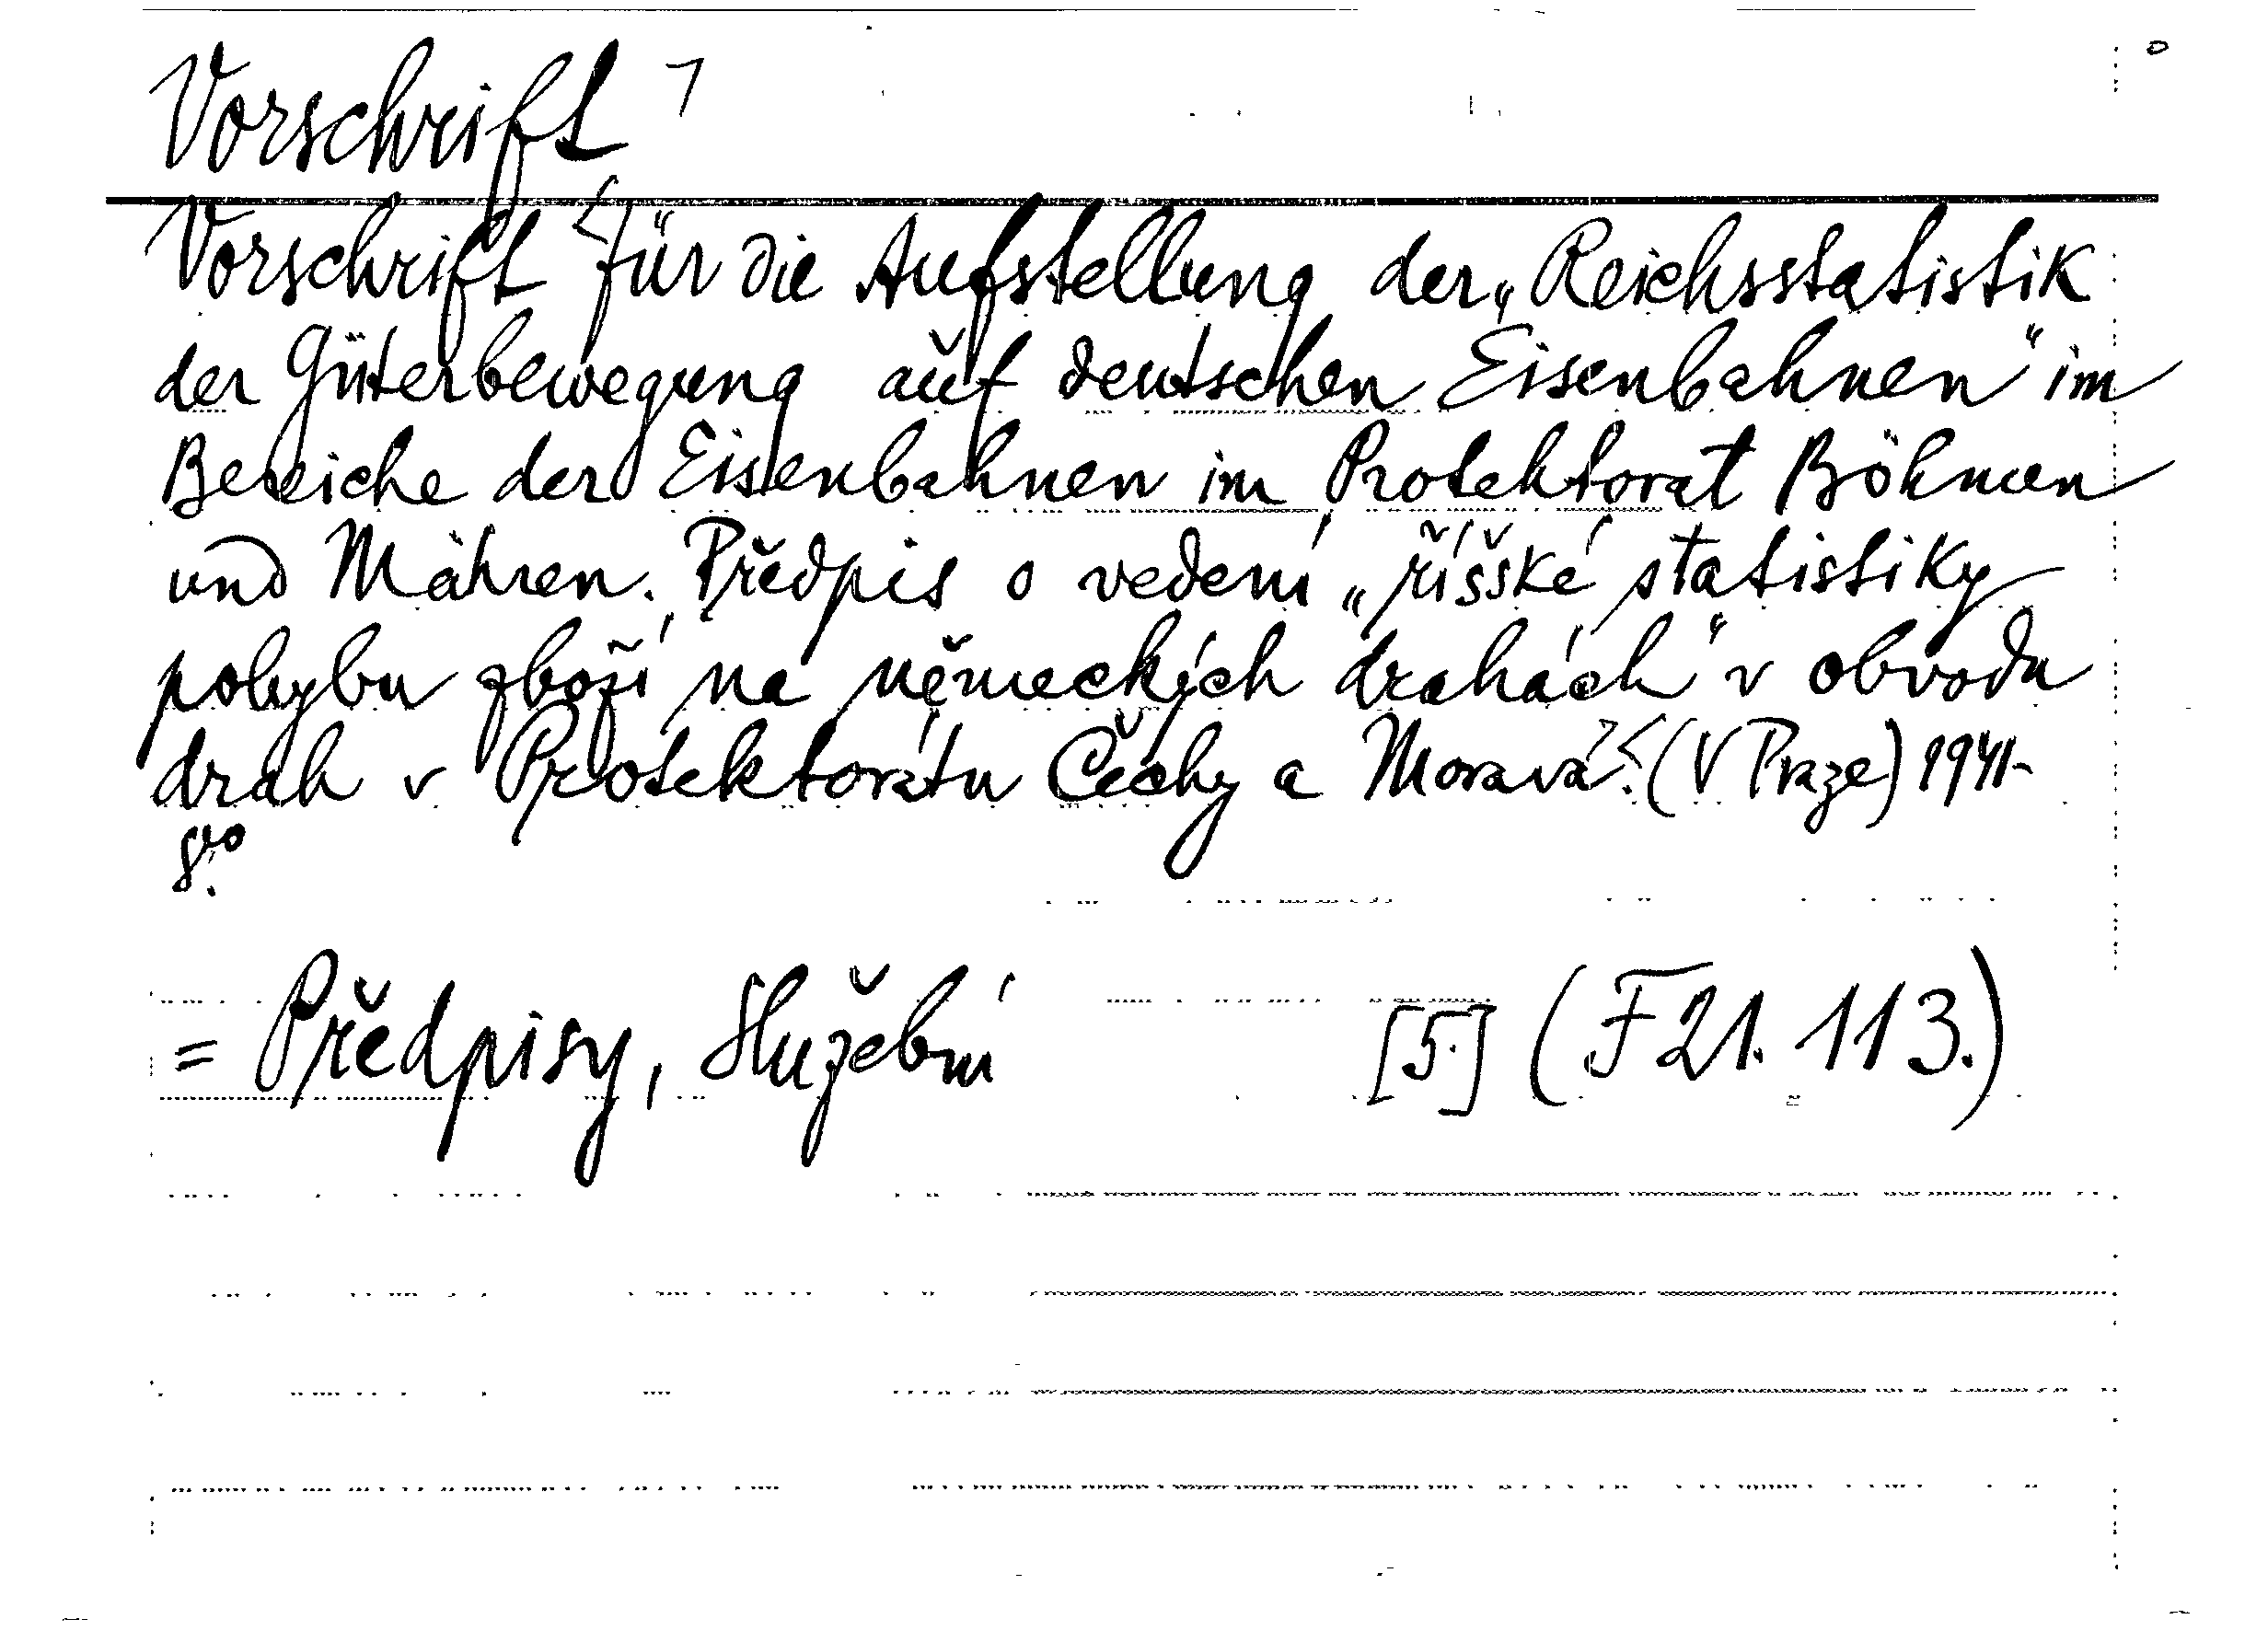 Vorschrift
Vorschrift für die Aufstellung der „Reichsstatistik
der Güterbewegung auf deutschen Eisenbahnen" im
Bereiche der Eisenbahnen im Protektorat Böhmen
und Mähren. Předpis o vedení „říšské statistiky
pohybu zboží na německých drahách" v obvodu
drah v Protektorátu Čechy a Morava. (V Praze) 1941-
8vo.
= Předpisy, služební [5.] (F 21. 113.)